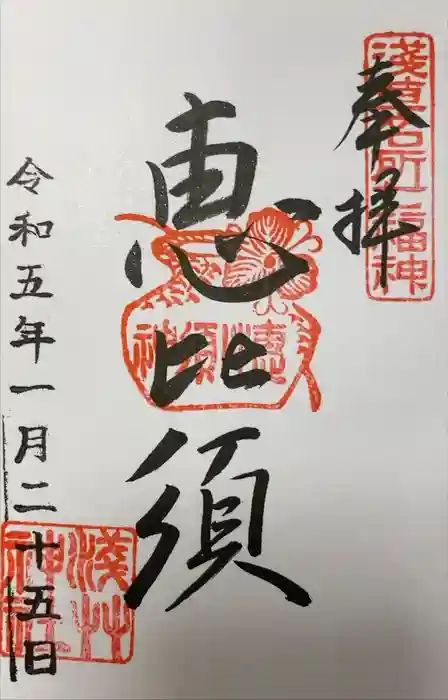 奉拝
淺草名所七福神
恵比須
惠比須神
令和五年一月二十五日
淺草神社